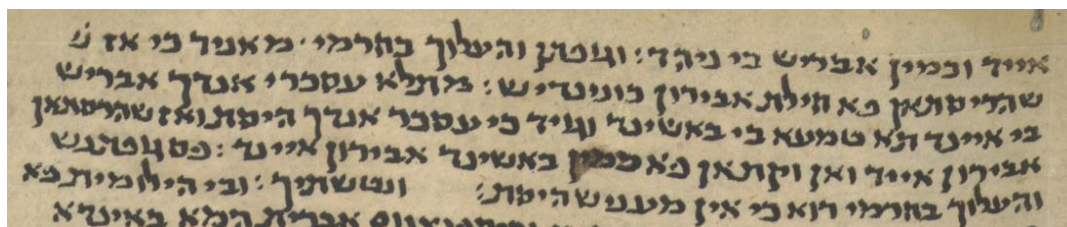 אייד וכמין אבריש בי ניהד: וגופתן והעלוך בחרמי׳ מאניד כי אז ש׳
שהריסתאן פא חילת אבירון כונינדיש: מתלא עסכרי אנדך אבריש
בי איינד תא טמעא בי באשינד וגויד כי עסכר אנדך היסת ואז שהרסתאן
אבירון אייד ואן וקתאן פא כמין באשינד אבירון איינד: פס גופתהש
והעלוך בחרמי רוא כי אין מעניש היסת: ונטשתיך: ובי הילומית פא